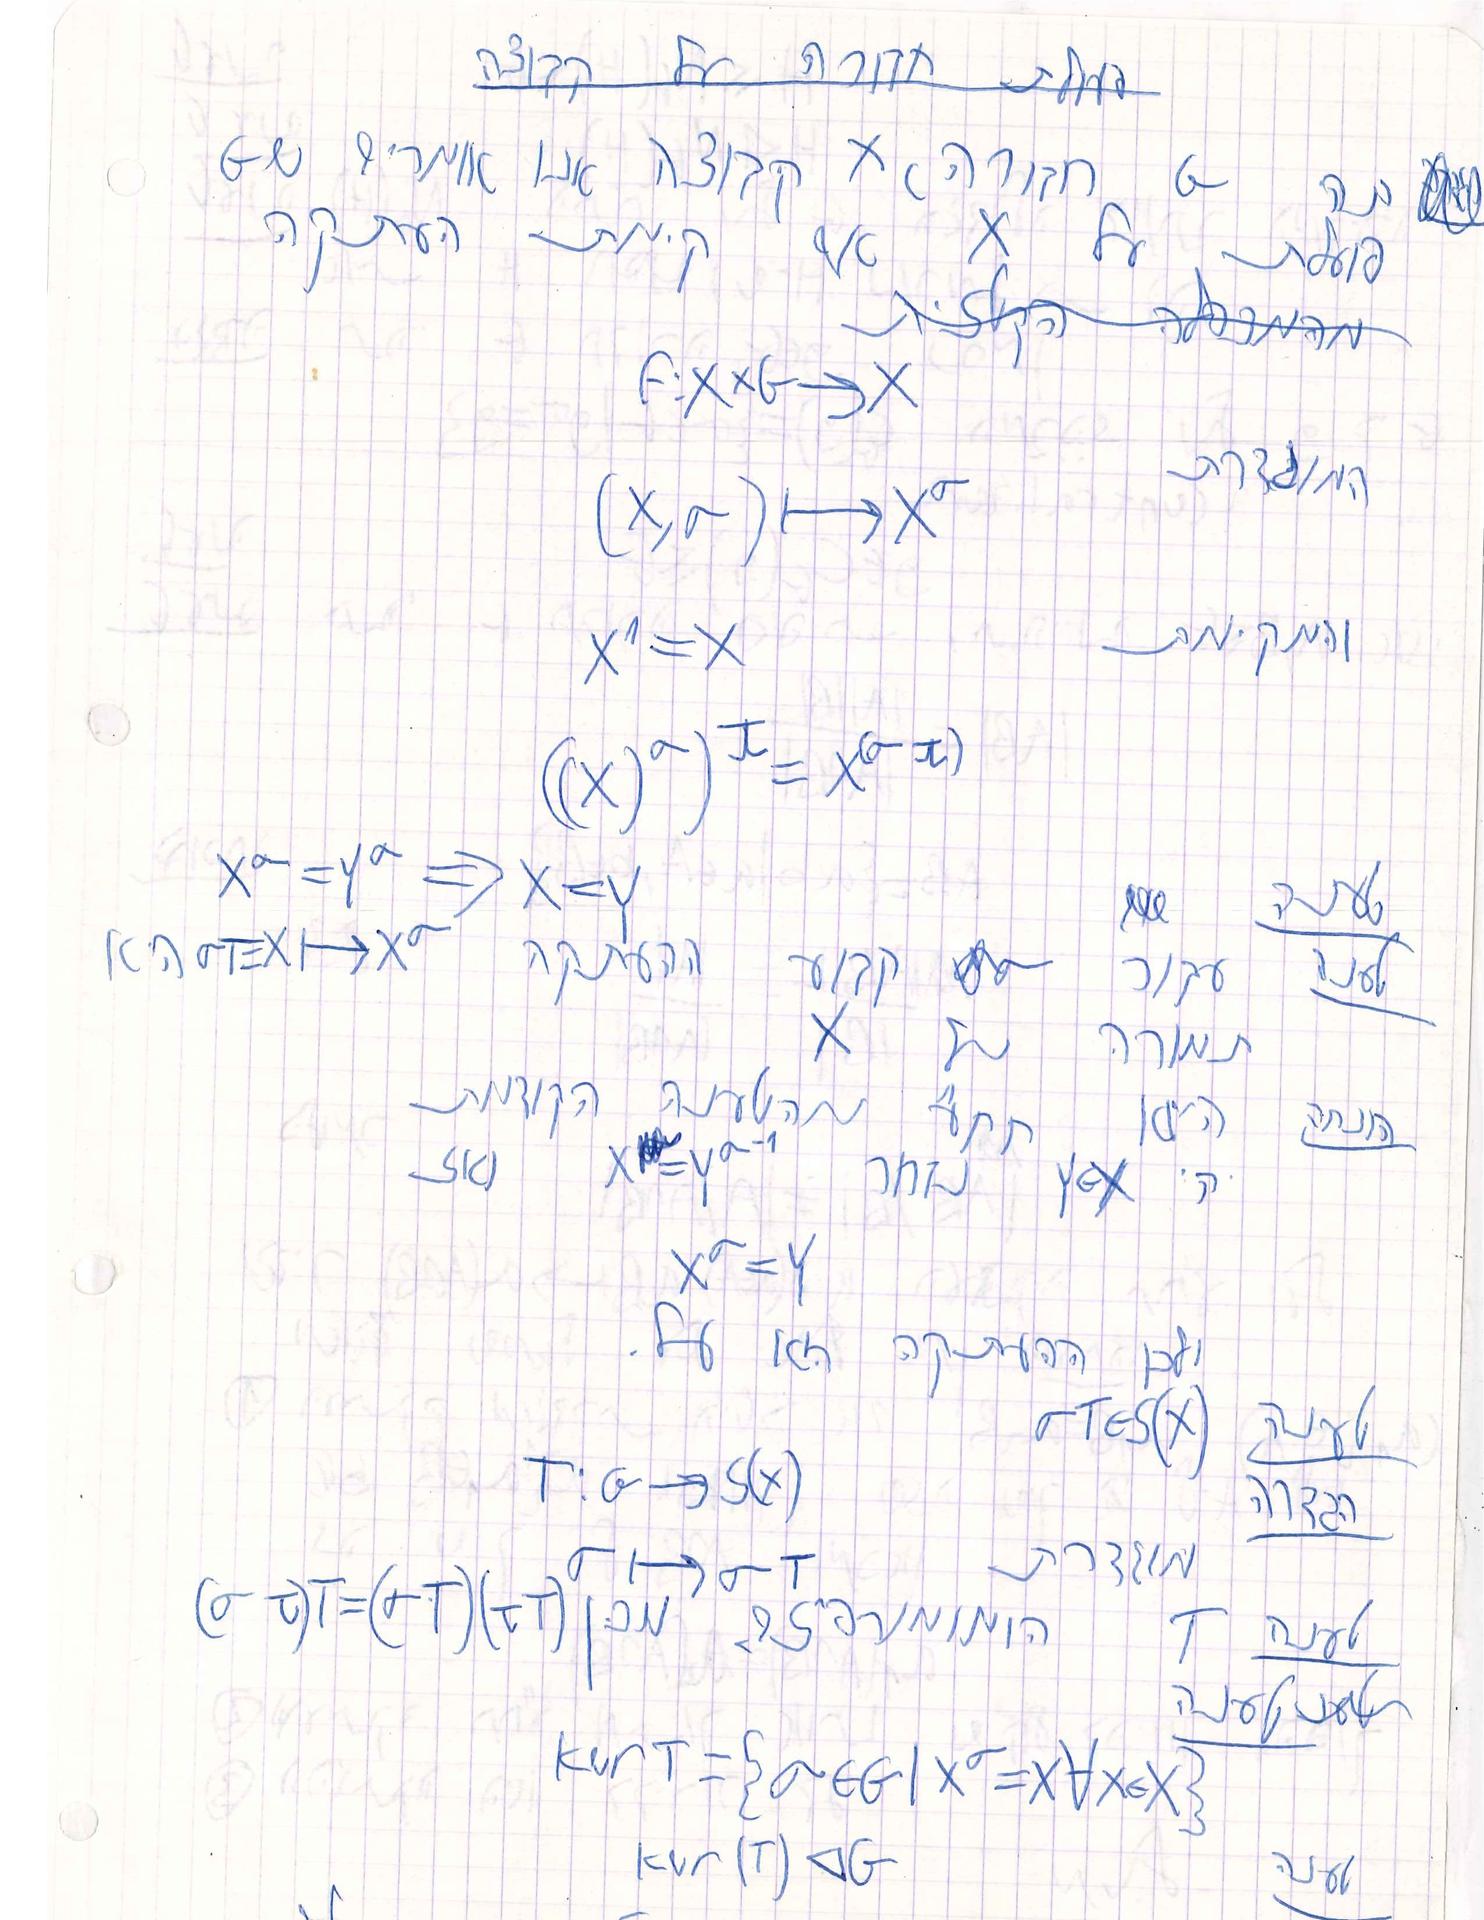 פעולת חבורה על קבוצה
תה G חבורה, X קבוצה אנו אומרים שG
פועלת על X אם קימת העתקה
מהמכפלה הקרטזית
f: X×G → X
המוגדרת
(X,σ) ↦ X^σ
והמקימת
X^1 = X
((X)^σ)^τ = X^(σ τ)
טענה X^σ = Y^σ ⇒ X = Y
טענה עבור σ קבוע ההעתקה σT=X ↦ X^σ היא
תמורה של X
הוכחה היא חחע מהטענה הקודמת
יהי Y∈X נבחר X = Y^σ-1 ואז
X^σ = Y
ולכן ההעתקה היא על.
טענה σT∈S(X)
הגדרה T: G → S(X)
מוגדרת σ ↦ σT
טענה T הומומורפיזם מכן (σ τ)T=(σT)(τT)
טענה
kerT = {σ∈G | X^σ = X ∀X∈X}
טענה ker(T) ◁ G